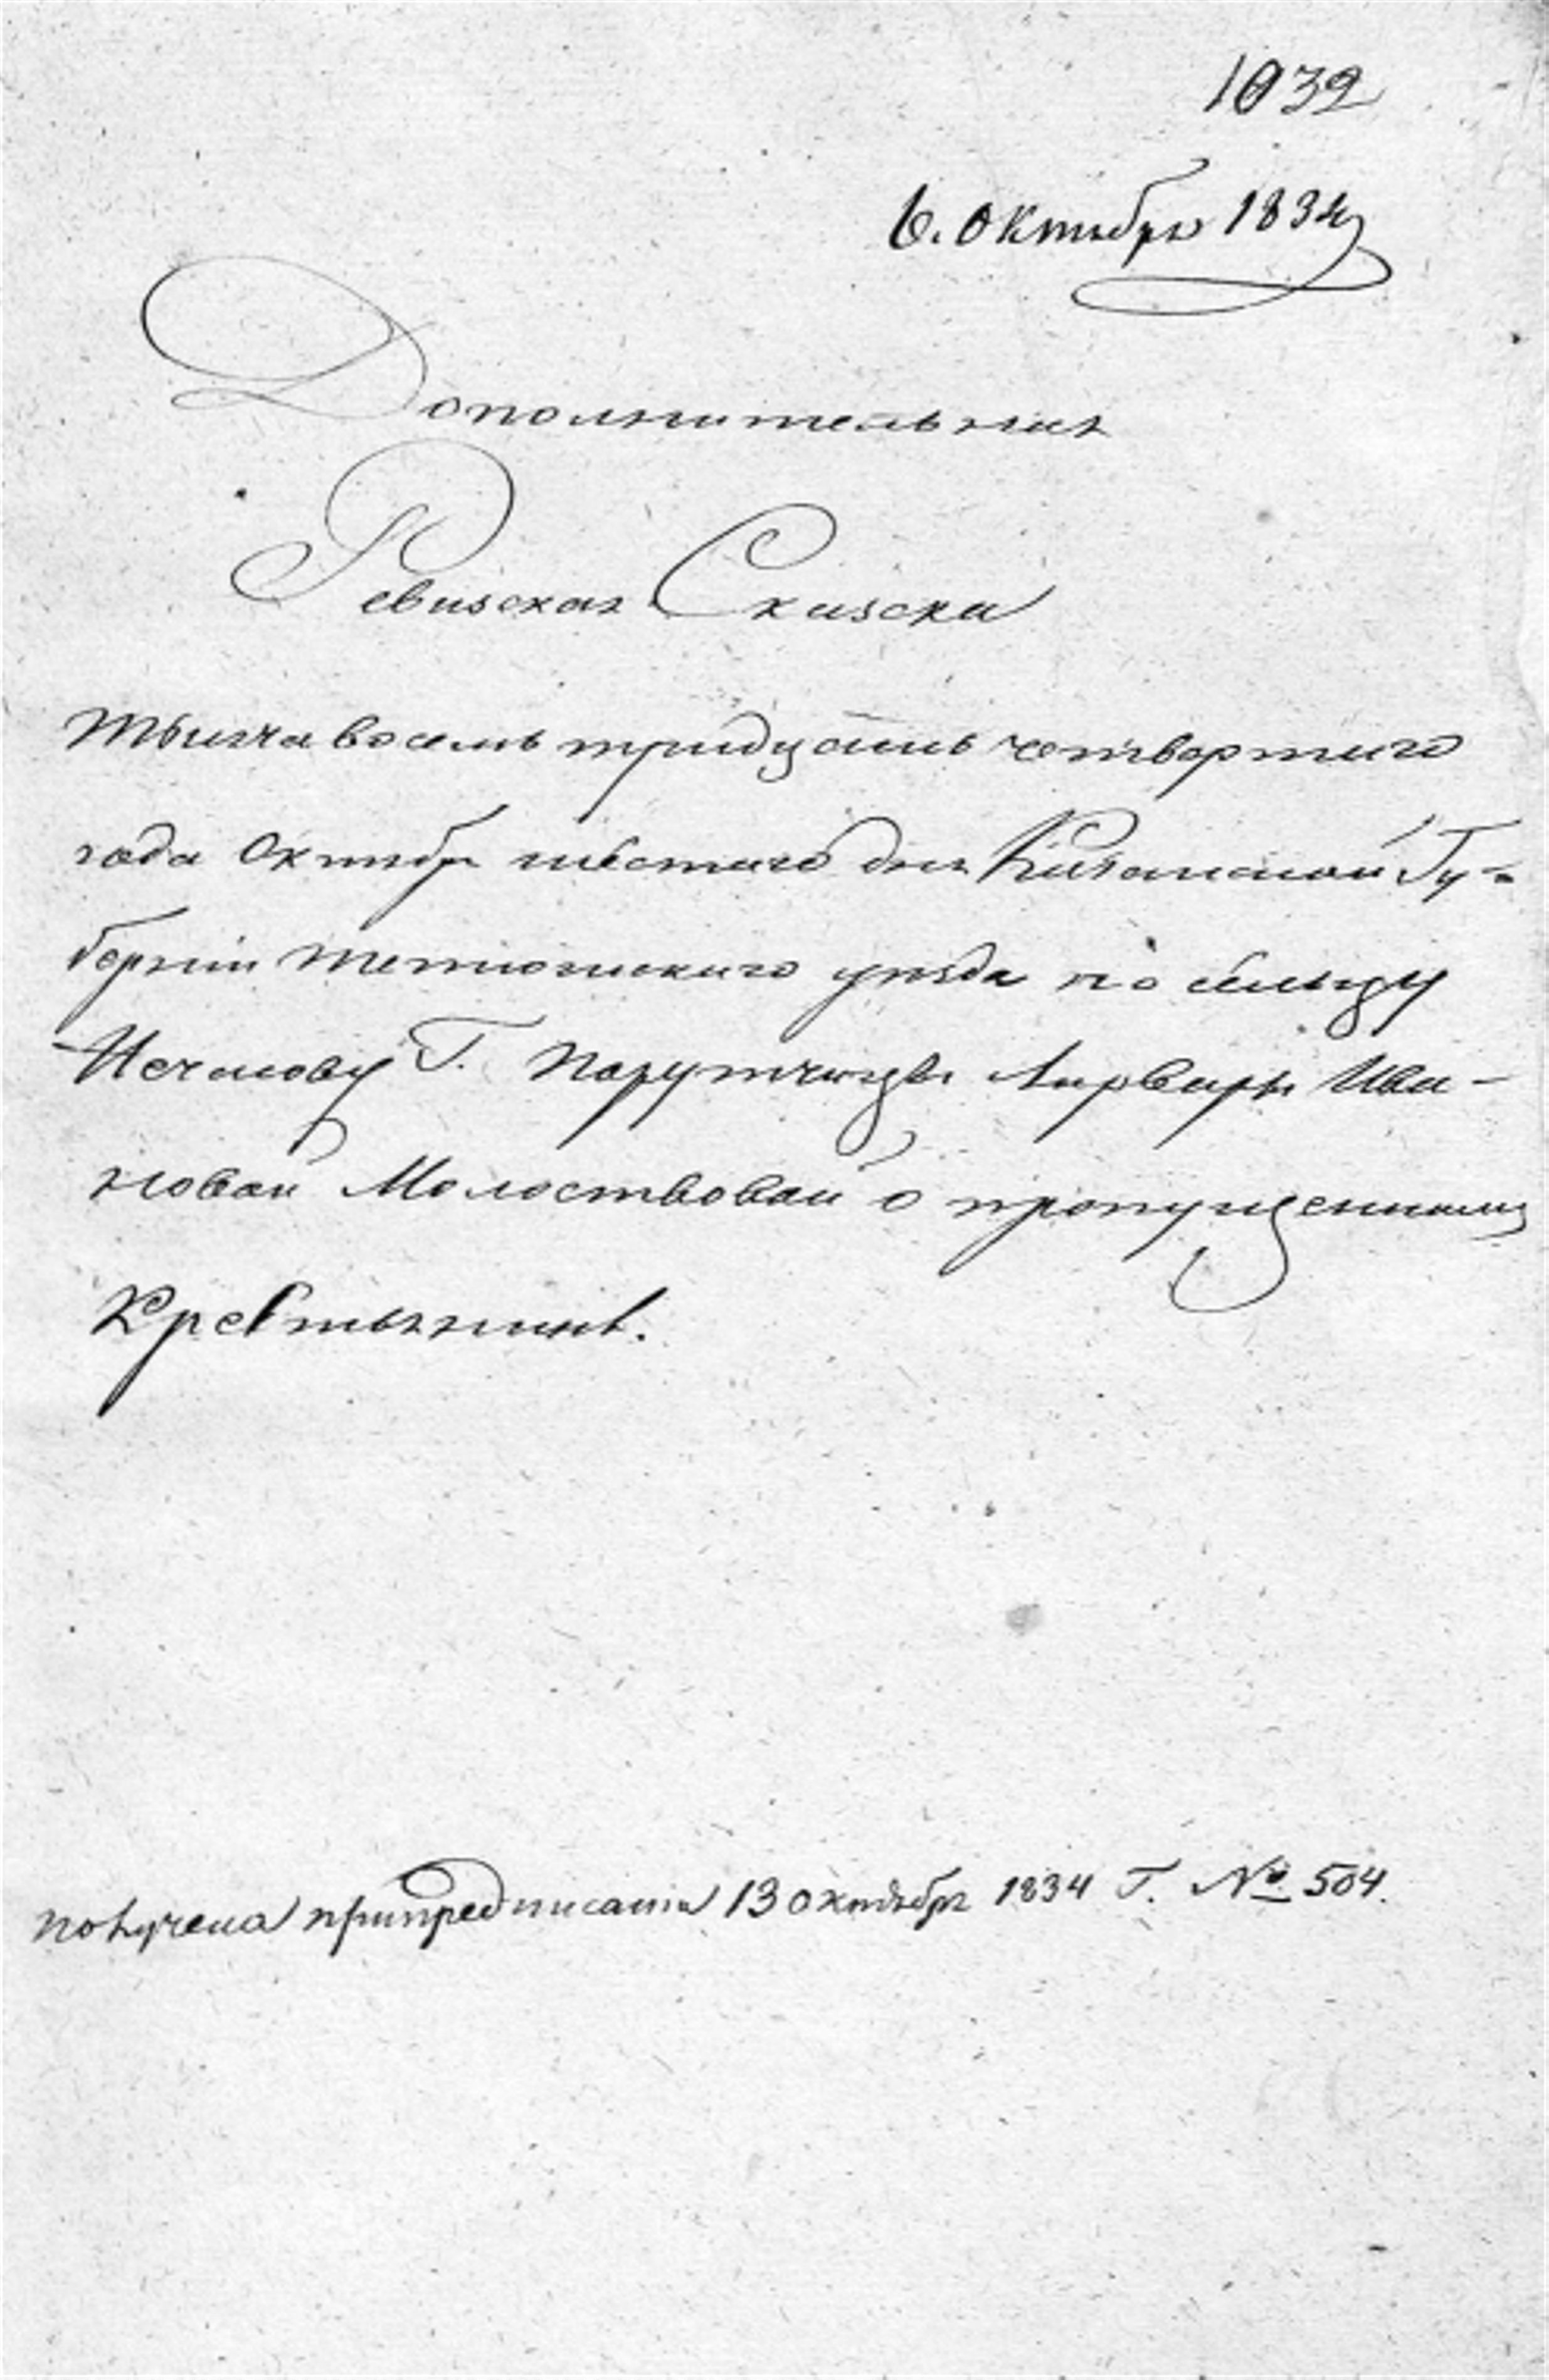 1032
6. Октября 1834
Дополнительная
Ревизская Сказска
Тысяча восемь тридцать четвертаго
года Октября шестаго дня Казанской Гу-
бернiи Тетюшскаго уезда по сельцу
Г. Порутчицы Варвары Ива-
новой Молоствовой о пропущенныхъ
Крестьянинѣ.
получена припредписании 13 октября 1834 Г. № 504.